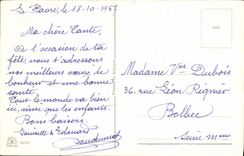 Le Havre, le 18-10-1957
Ma chère Tante,
A l'occasion de ta
fête, nous t'adressons
nos meilleurs vœux de
bonheur et une bonne
santé.
Tout le monde va bien
ici, ainsi que les enfants.
Bons baisers
et Edouard
Madame Vve Dubois
36, rue Léon Régnier
Bolbec
Seine Mme